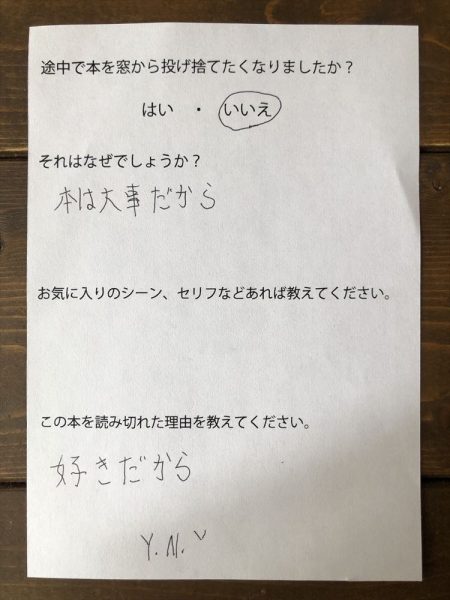 途中で本を窓から投げ捨てたくなりましたか？
はい ・ いいえ
それはなぜでしょうか？
本は大事だから
お気に入りのシーン、セリフなどあれば教えてください。
この本を読み切れた理由を教えてください。
好きだから
Y.N.